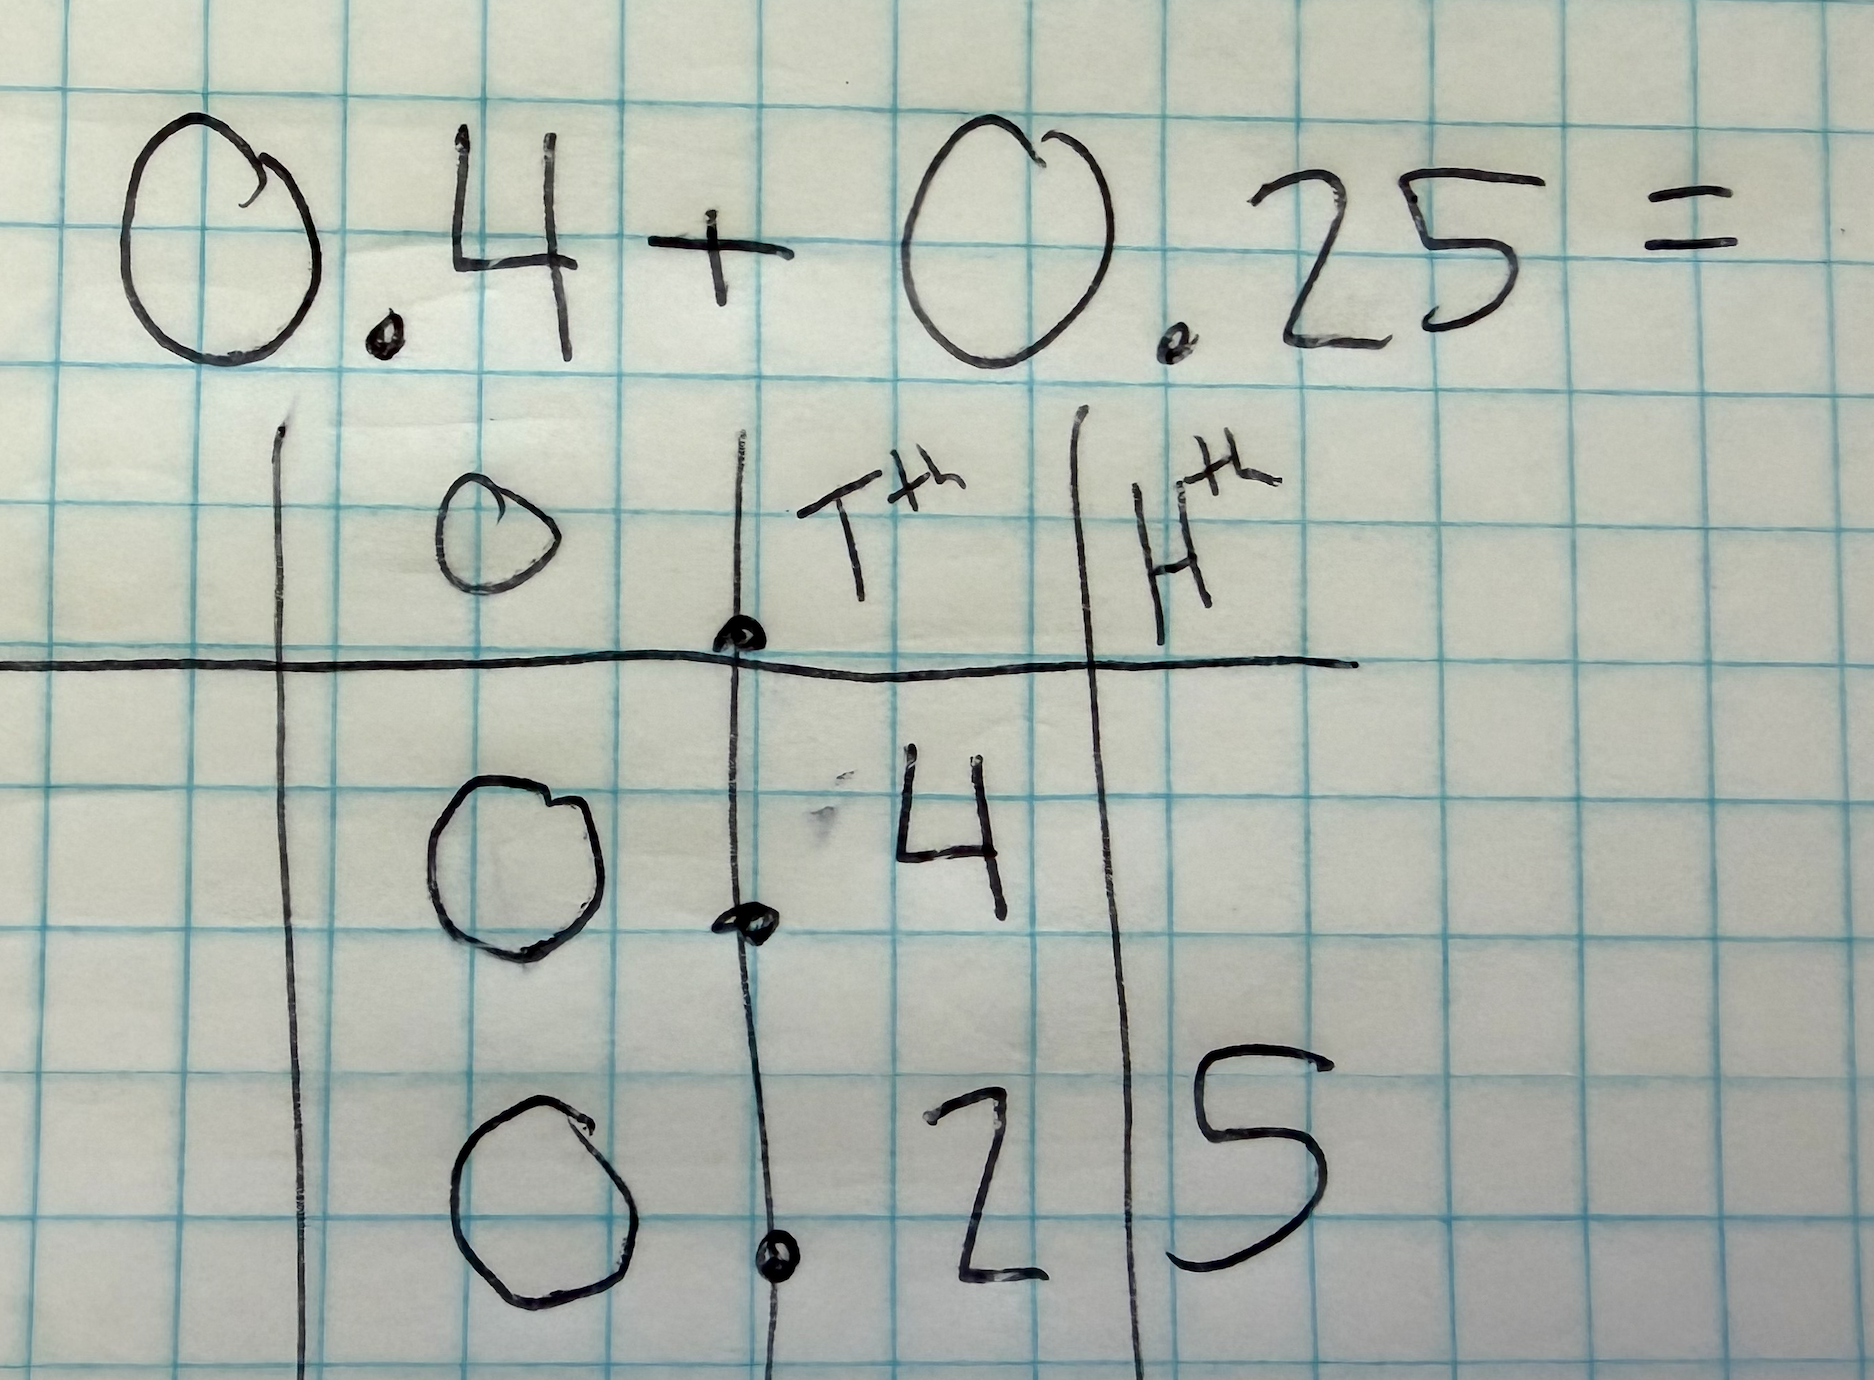 0.4 + 0.25 =
O . Tth Hth
0 . 4
0 . 2 5